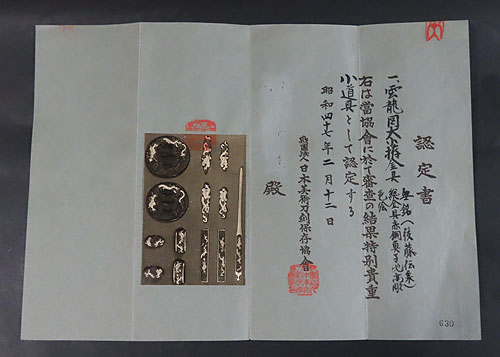 認定書
一、雲龍図大小揃金具 無銘(後藤伝来)
総金具赤銅魚子地高彫
色絵
右は當協會に於て審査の結果特別貴重
小道具として認定する
昭和四十七年二月十二日
財団法人日本美術刀剣保存協會
殿
630